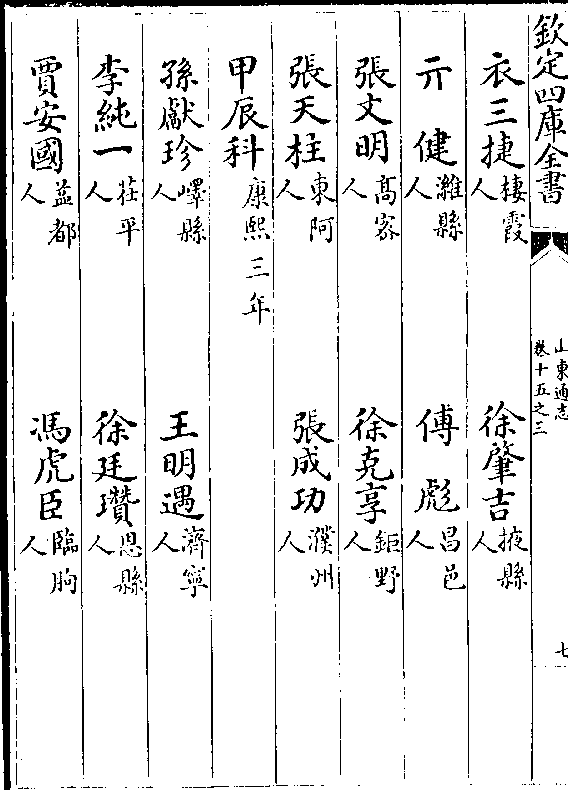 欽定四庫全書
山東通志
卷十五之三
七
衣三捷棲霞人 徐肇吉掖縣人
亓健濰縣人 傅彪昌邑人
張文明高宻人 徐克享鉅野人
張天柱東阿人 張成功濮州人
甲辰科康熙三年
孫獻珍嶧縣人 王明遇濟寧人
李純一茌平人 徐廷瓚恩縣人
賈安國益都人 馮虎臣臨朐人